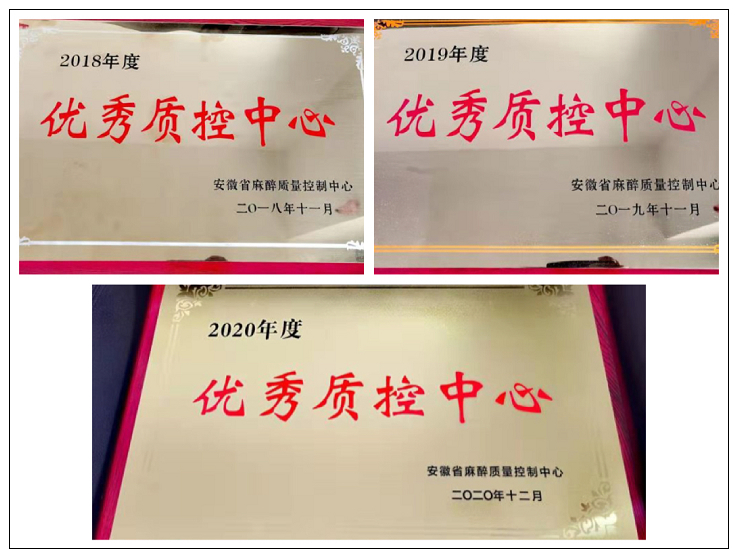 2018年度
优秀质控中心
安徽省麻醉质量控制中心
二〇一八年十一月
2019年度
优秀质控中心
安徽省麻醉质量控制中心
二〇一九年十一月
2020年度
优秀质控中心
安徽省麻醉质量控制中心
二〇二〇年十二月